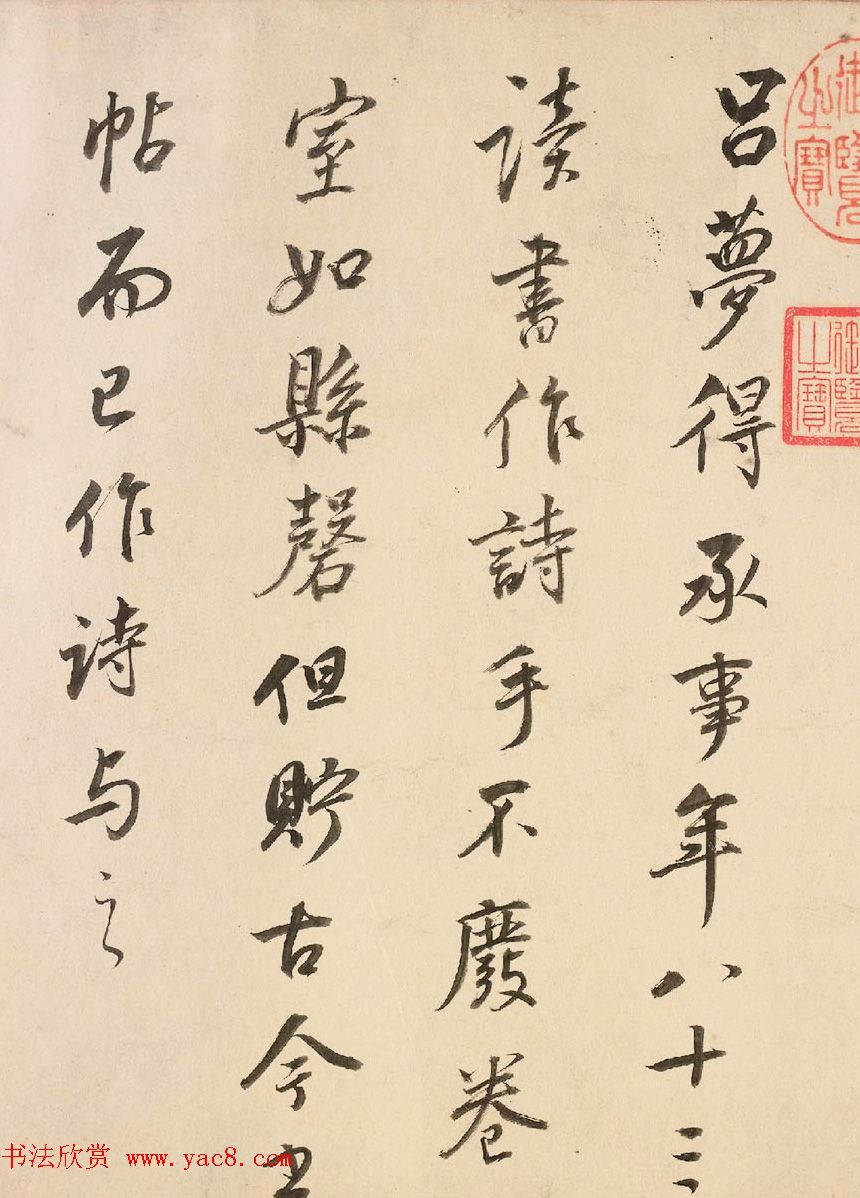 御覽之寶
御覽之寶
吕夢得承事年八十三
讀書作詩手不廢卷
室如縣磬但貯古今
帖而已作詩与之
书法欣赏 www.yac8.com